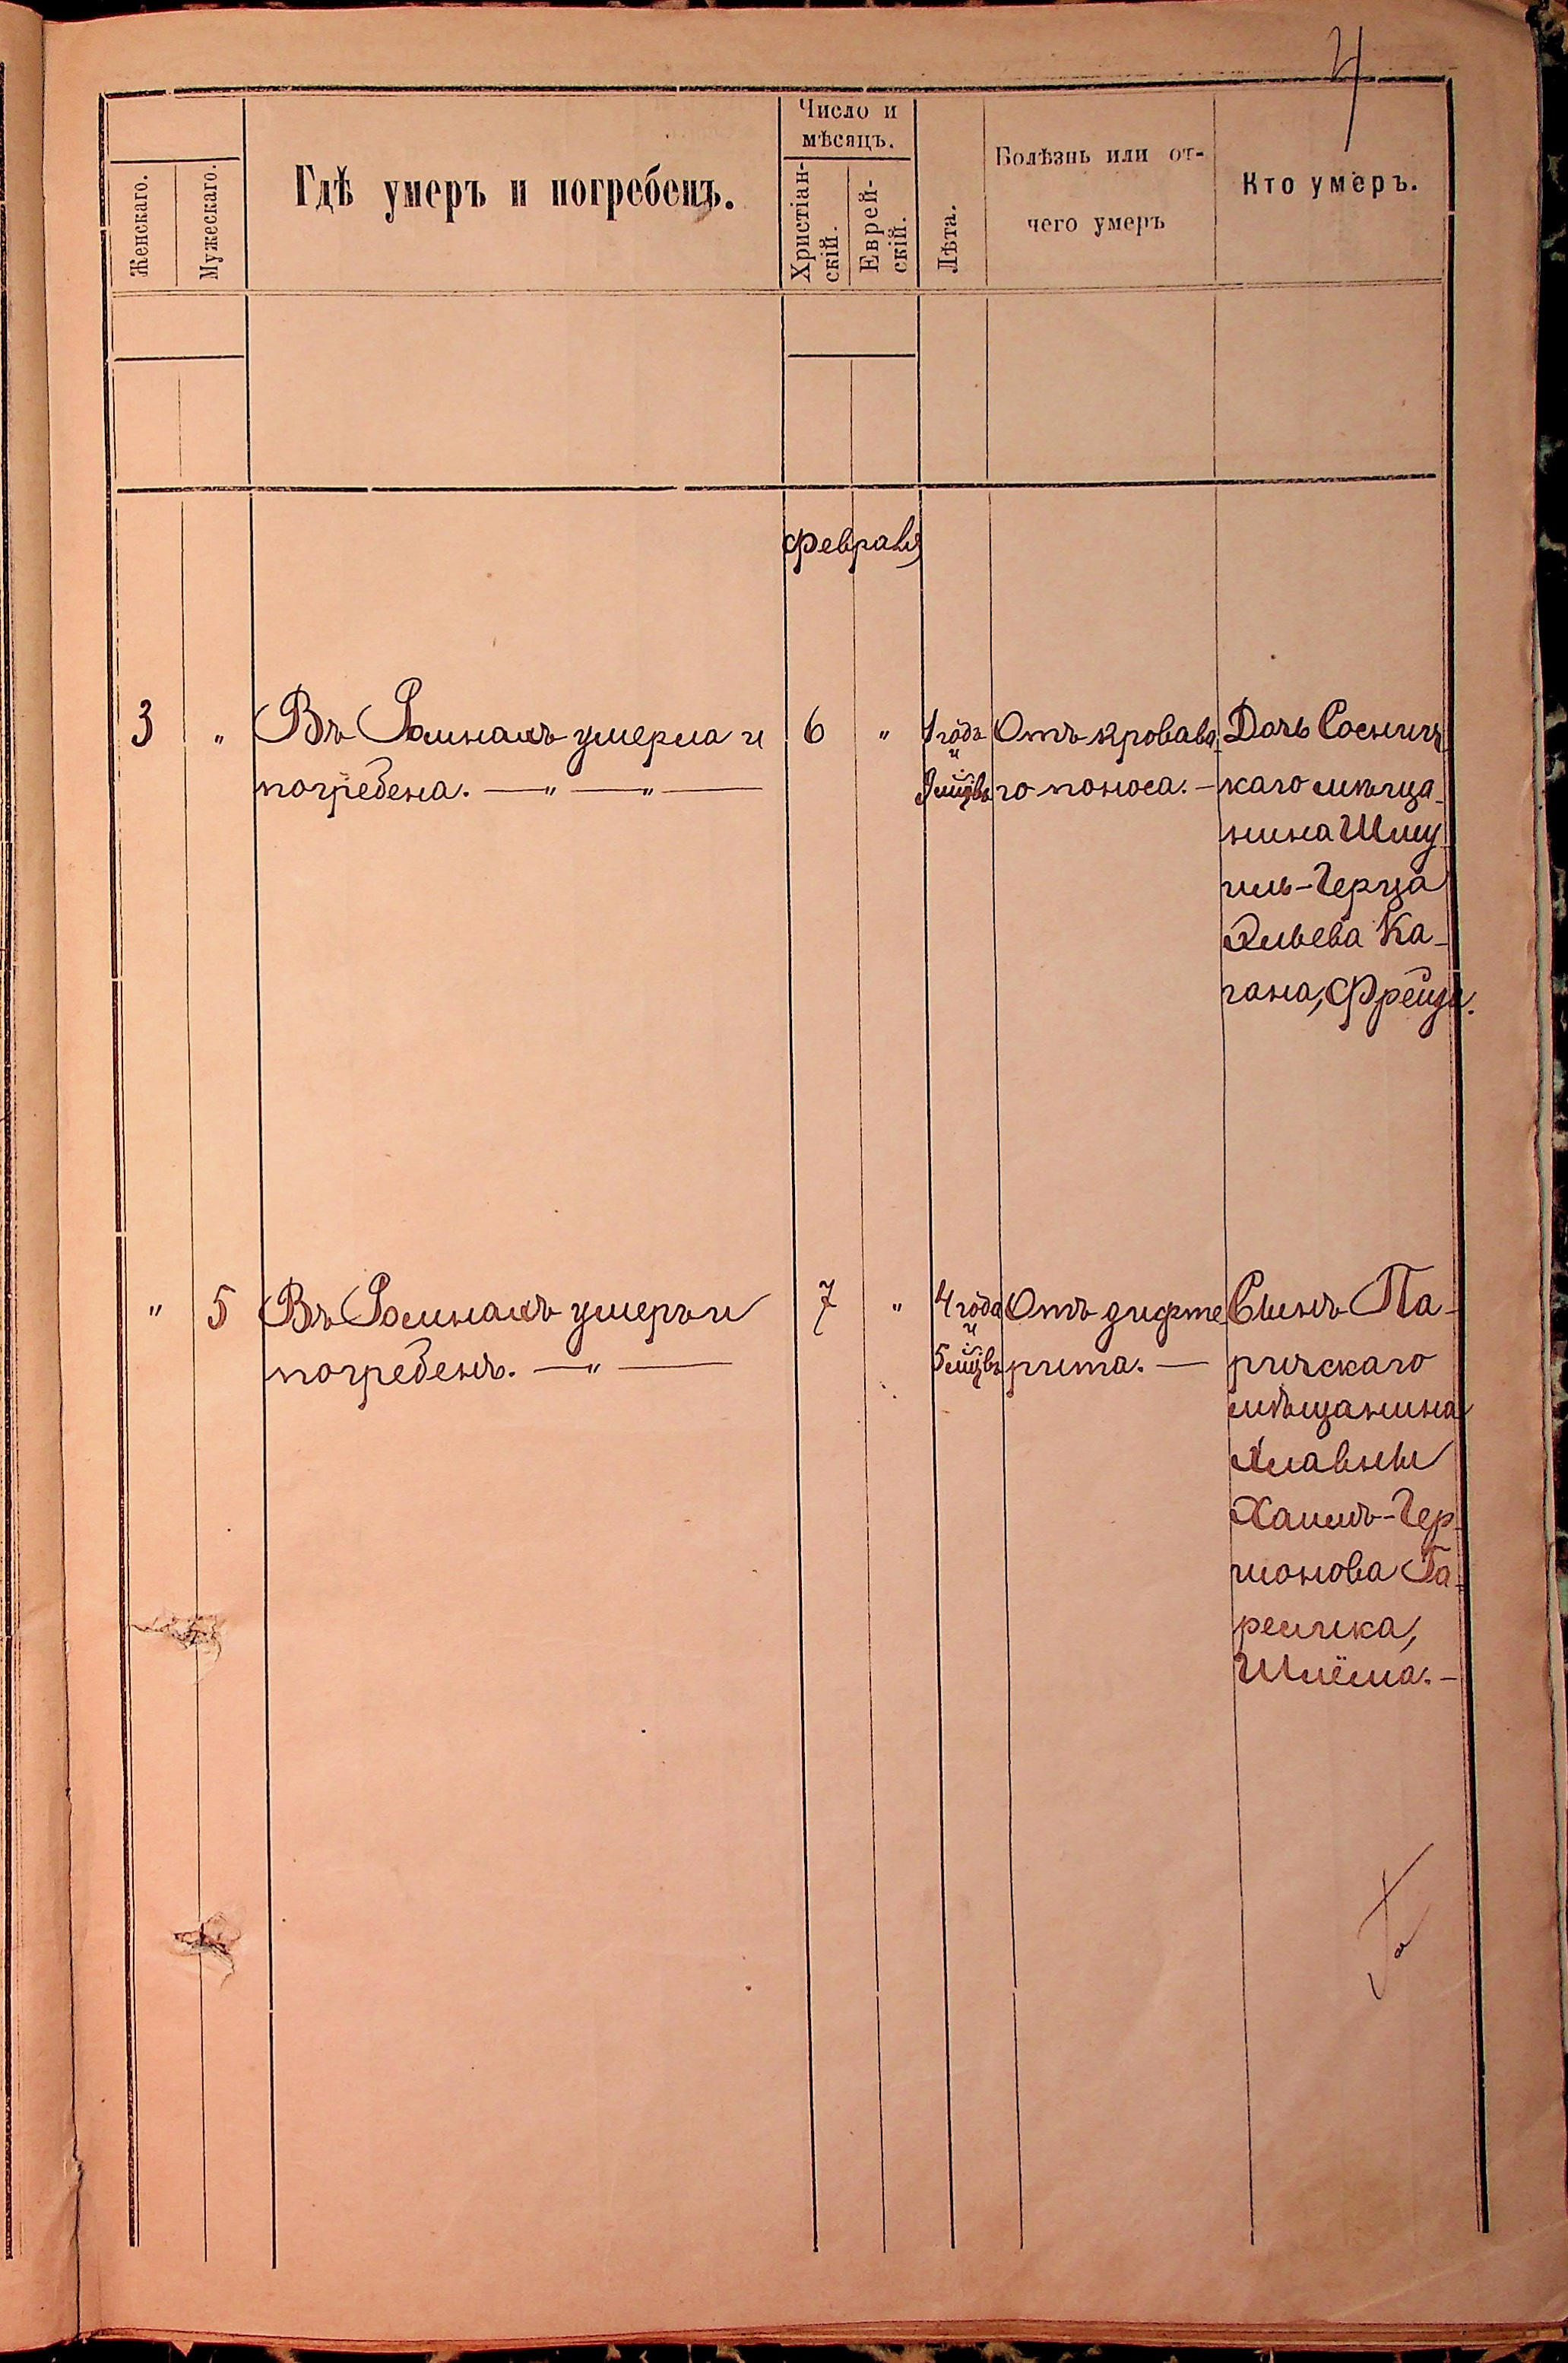 4
Женскаго.
Мужескаго.
Гдѣ умеръ и погребенъ.
Число и
мѣсяцъ.
Христіан-
скій.
Еврей-
скій.
Лѣта.
Болѣзнь или от-
чего умеръ
Кто умеръ.
Февраля
3 " Въ Ромнахъ умерла и
погребена. — " — " —
6 "
1 годъ
и
9 мцвъ
Отъ кроваво
го поноса. —
Дочь Соснич
каго мѣща-
нина Шму
иль-Герца
Эльева Ка-
гана, Фрейда.
" 5 Въ Ромнахъ умеръ и
погребенъ. — " —
7 "
4 года
и
5 мцвъ
Отъ дифте
рита. —
Сынъ Па-
ричскаго
мѣщанина
Хаимъ-Гер
шонова Га-
релика,
Шлёма. —